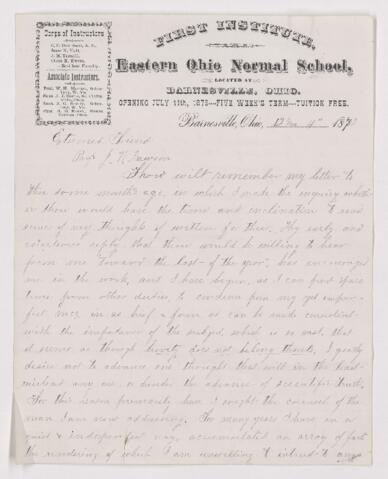 Corps of Instructors
Associate Instructors.
FIRST INSTITUTE,
Eastern Ohio Normal School,
LOCATED AT
BARNESVILLE, OHIO.
OPENING JULY 11th, 1875—FIVE WEEK'S TERM—TUITION FREE.
Barnesville, Ohio, 12 mo 4th 187
Esteemed Friend
Prof J.
Thou wilt remember my letter to
thee some months ago, in which I made the enquiry wheth-
er thou would have the time and inclination to read
some of my thoughts if written for thee. Thy early and
courteous reply that thou would be willing to hear
from me "toward the last of the year", has encouraged
me in the work, and I have begun, as I can find spare
time from other duties, to condense from my yet imper-
fect in as brief a form as can be made consistent
with the importance of the subject, which is so vast, that
it seems as though brevity does not belong thereto. I greatly
desire not to advance one thought that will in the least
mislead any one, or hinder the advance of scientific truth.
For this reason primarily have I sought the counsel of the
man I am now addressing. For many years I have, in a
quiet & independent way, accumulated an array of fact
the rendering of which I am unwilling to intrust to any